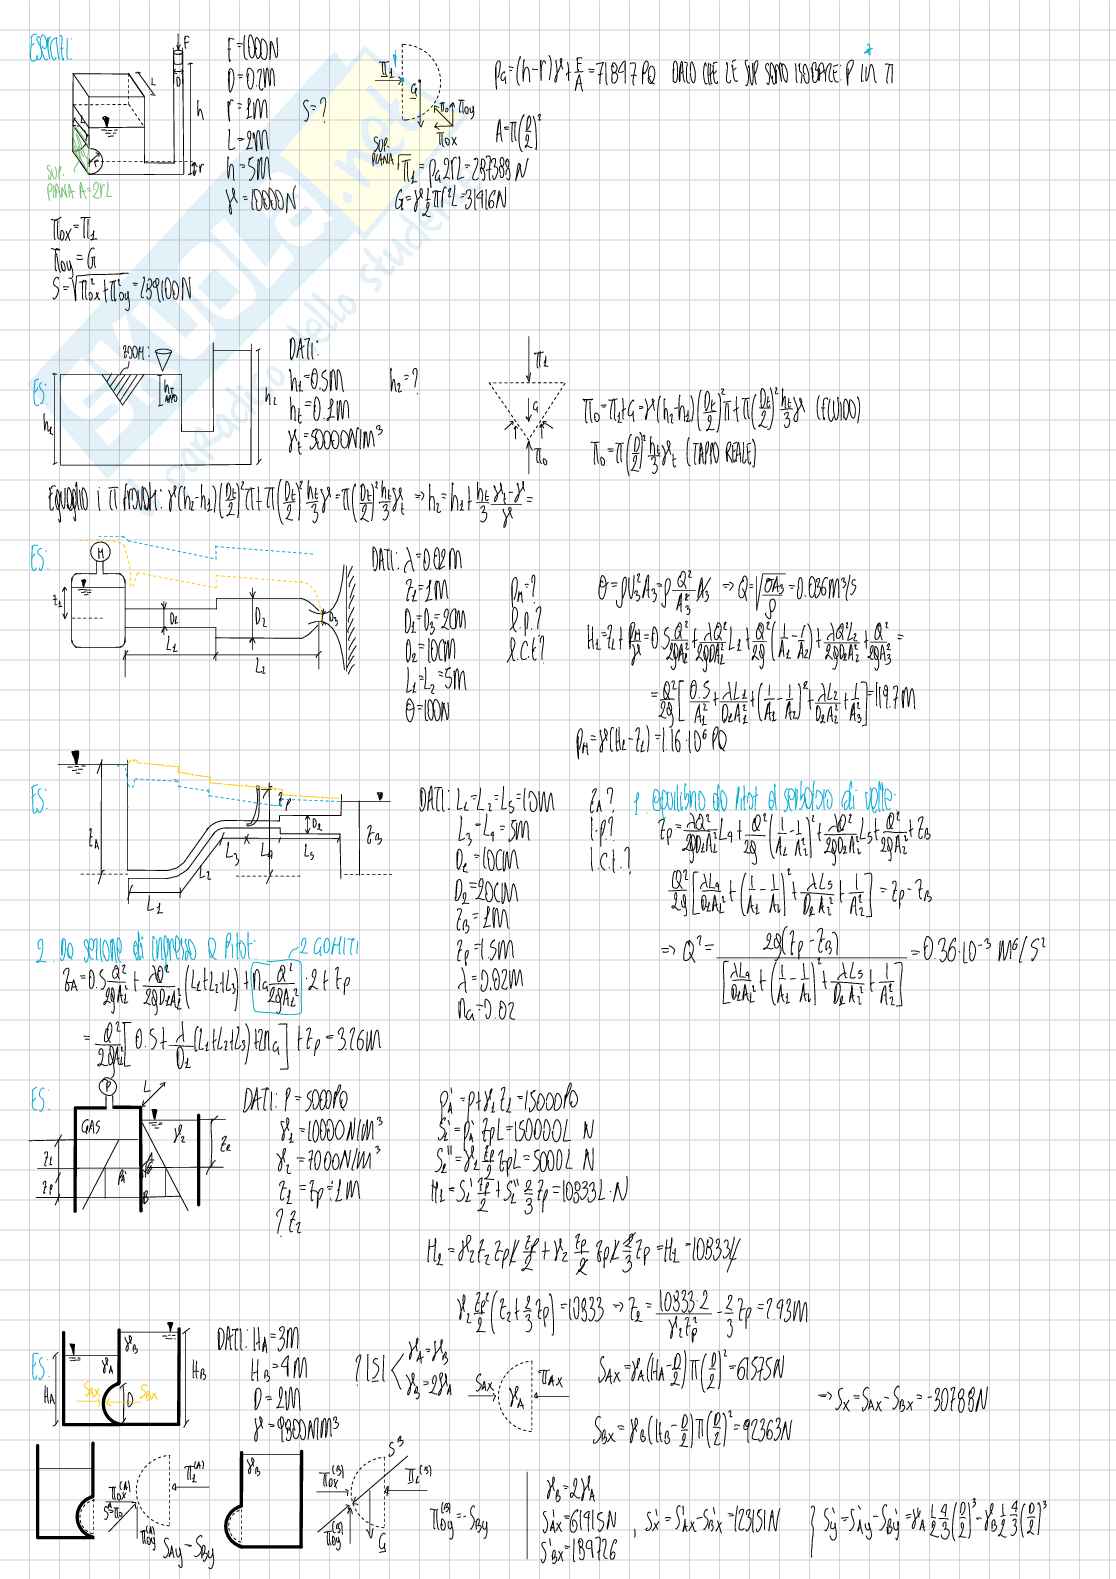 ESERCIZI:
F=1000N
D=0.2M
r=1M
L=2M
h=5M
γ=10000N
S=?
F
D
h
r
L
SUP.
PIANA A=2rL
Π1
G
Π0y
Π0x
SUP.
PIANA
pG=(h-r)γ+F/A=71847PA DATO CHE LE SUP SONO ISOBARE: P IN Π
A=π(D/2)²
Π1=pG2rL=287388N
G=γ½πr²L=31416N
Π0x=Π1
Π0y=G
S=√(Π0x²+Π0y²)=289100N
ES:
ZOOM:
h1
ht
TAPPO
h2
DATI:
h1=0.5M
ht=0.1M
γt=50000N/M³
h2=?
Π1
G
Π0
Π0=Π1+G=γ(h2-h1)(Dt/2)²π+π(Dt/2)²ht/3 γ (FLUIDO)
Π0=π(D/2)²ht/3 γt (TAPPO REALE)
Eguaglio i Π trovati: γ(h2-h1)(Dt/2)²π+π(Dt/2)²ht/3 γ=π(Dt/2)²ht/3 γt ⇒ h2=h1+ht/3 (γt-γ)/γ=
ES:
M
z1
D1
D2
D3
L1
L2
DATI: λ=0.02M
z1=1M
D1=D3=20M
D2=10CM
L1=L2=5M
θ=100N
pM=?
l.p.?
l.c.t?
θ=ρU3²A3=ρ Q²/A3² A3 ⇒ Q=√(θA3/ρ)=0.036M³/S
H1=z1+pM/γ=0.5 Q²/2gA1²+λQ²/2gD1A1² L1+Q²/2g(1/A1-1/A2)²+λQ²L2/2gD2A2²+Q²/2gA3²=
=Q²/2g[0.5/A1²+λL1/D1A1²+(1/A1-1/A2)²+λL2/D2A2²+1/A3²]=119.7M
pM=γ(H1-z1)=1.16·10⁶PA
ES:
zA
zP
D2
zB
L1
L2
L3
L4
L5
DATI: L1=L2=L5=10M
L3=L4=5M
D1=10CM
D2=20CM
zB=1M
zP=1.5M
λ=0.02M
nG=0.02
zA?
l.p?
l.c.t.?
1. equilibrio da Pitot a serbatoio di valle:
zP=λQ²/2gD1A1² L4+Q²/2g(1/A1-1/A2)²+λQ²/2gD2A2² L5+Q²/2gA2²+zB
Q²/2g[λL4/D1A1²+(1/A1-1/A2)²+λL5/D2A2²+1/A2²]=zP-zB
⇒ Q²=2g(zP-zB)/[λL4/D1A1²+(1/A1-1/A2)²+λL5/D2A2²+1/A2²]=0.36·10⁻³ M⁶/S²
2. Da sezione di ingresso a Pitot:
2 GOMITI
zA=0.5 Q²/2gA1²+λQ²/2gD1A1²(L1+L2+L3)+nG Q²/2gA1²·2+zP
=Q²/2gA1²[0.5+λ/D1(L1+L2+L3)+2nG]+zP=3.26M
ES:
P
L
GAS
γ2
z2
z1
zP
DATI: P=5000PA
γ1=10000N/M³
γ2=7000N/M³
z1=zP=1M
? z2
pA'=p+γ1z1=15000PA
S1'=pA'zPL=15000L N
S1''=γ1 zP/2 zPL=5000L N
M1=S1' zP/2+S1'' 2/3 zP=10833L·N
M2=γ2z2zPL zP/2+γ2 zP/2 zPL 2/3 zP=M1=10833L
γ2 zP²/2(z2+2/3 zP)=10833 ⇒ z2=10833·2/γ2zP²-2/3 zP=2.43M
ES:
HA
HB
γA
γB
D
SAx
SBx
DATI: HA=3M
HB=4M
D=2M
γ=9800N/M³
?|S|
γA=γB
γB=2γA
SAx
γA
ΠAx
SAx=γA(HA-D/2)π(D/2)²=61575N
SBx=γB(HB-D/2)π(D/2)²=92363N
⇒Sx=SAx-SBx=-30788N
Π0x(A)
Π1(A)
Π0y(A)
SAy-SBy
γB
Π0x(B)
Π1(B)
Π0y(B)
G
Π0y(B)=-SBy
γB=2γA
S'Ax=61915N
S'Bx=184726
, S'x=S'Ax-S'Bx=123151N
S'y=S'Ay-S'By=γA½ 4/3(D/2)³-γB½ 4/3(D/2)³
SKUOLA.net
il paradiso dello studente